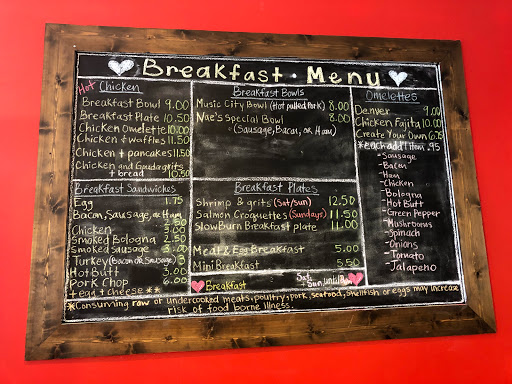 Breakfast • Menu
Hot Chicken
Breakfast Bowl 9.00
Breakfast Plate 10.50
Chicken Omelette 10.00
Chicken & waffles 11.50
Chicken + pancakes 11.50
Chicken and Gouda grits
+ bread 10.50
Breakfast Sandwiches
Egg 1.75
Bacon, Sausage, or Ham
2.50
Chicken 3.00
Smoked Bologna 2.50
Smoked sausage 3.00
Turkey (Bacon or Sausage) 3
Hot Butt 3.00
Pork Chop 6.00
+ egg + cheese **
Breakfast Bowls
Music City Bowl (Hot pulled Pork) 8.00
Nae's Special Bowl 8.00
(Sausage, Bacon, or Ham)
Breakfast Plates
Shrimp & grits (Sat/Sun) 12.50
Salmon Croquettes (Sundays) 11.50
SlowBurn Breakfast plate 11.00
Meat & Egg Breakfast 5.00
Mini Breakfast 5.50
Breakfast Sat + Sun until
Omelettes
Denver 9.00
Chicken Fajita 10.00
Create Your Own 6.25
*each add'l item .95
- Sausage
- Bacon
- Ham
- Chicken
- Bologna
- Hot Butt
- Green Pepper
- Mushrooms
- Spinach
- Onions
- Tomato
- Jalapeño
*Consuming raw or undercooked meats, poultry, pork, seafood, shellfish or eggs may increase
risk of food borne illness.